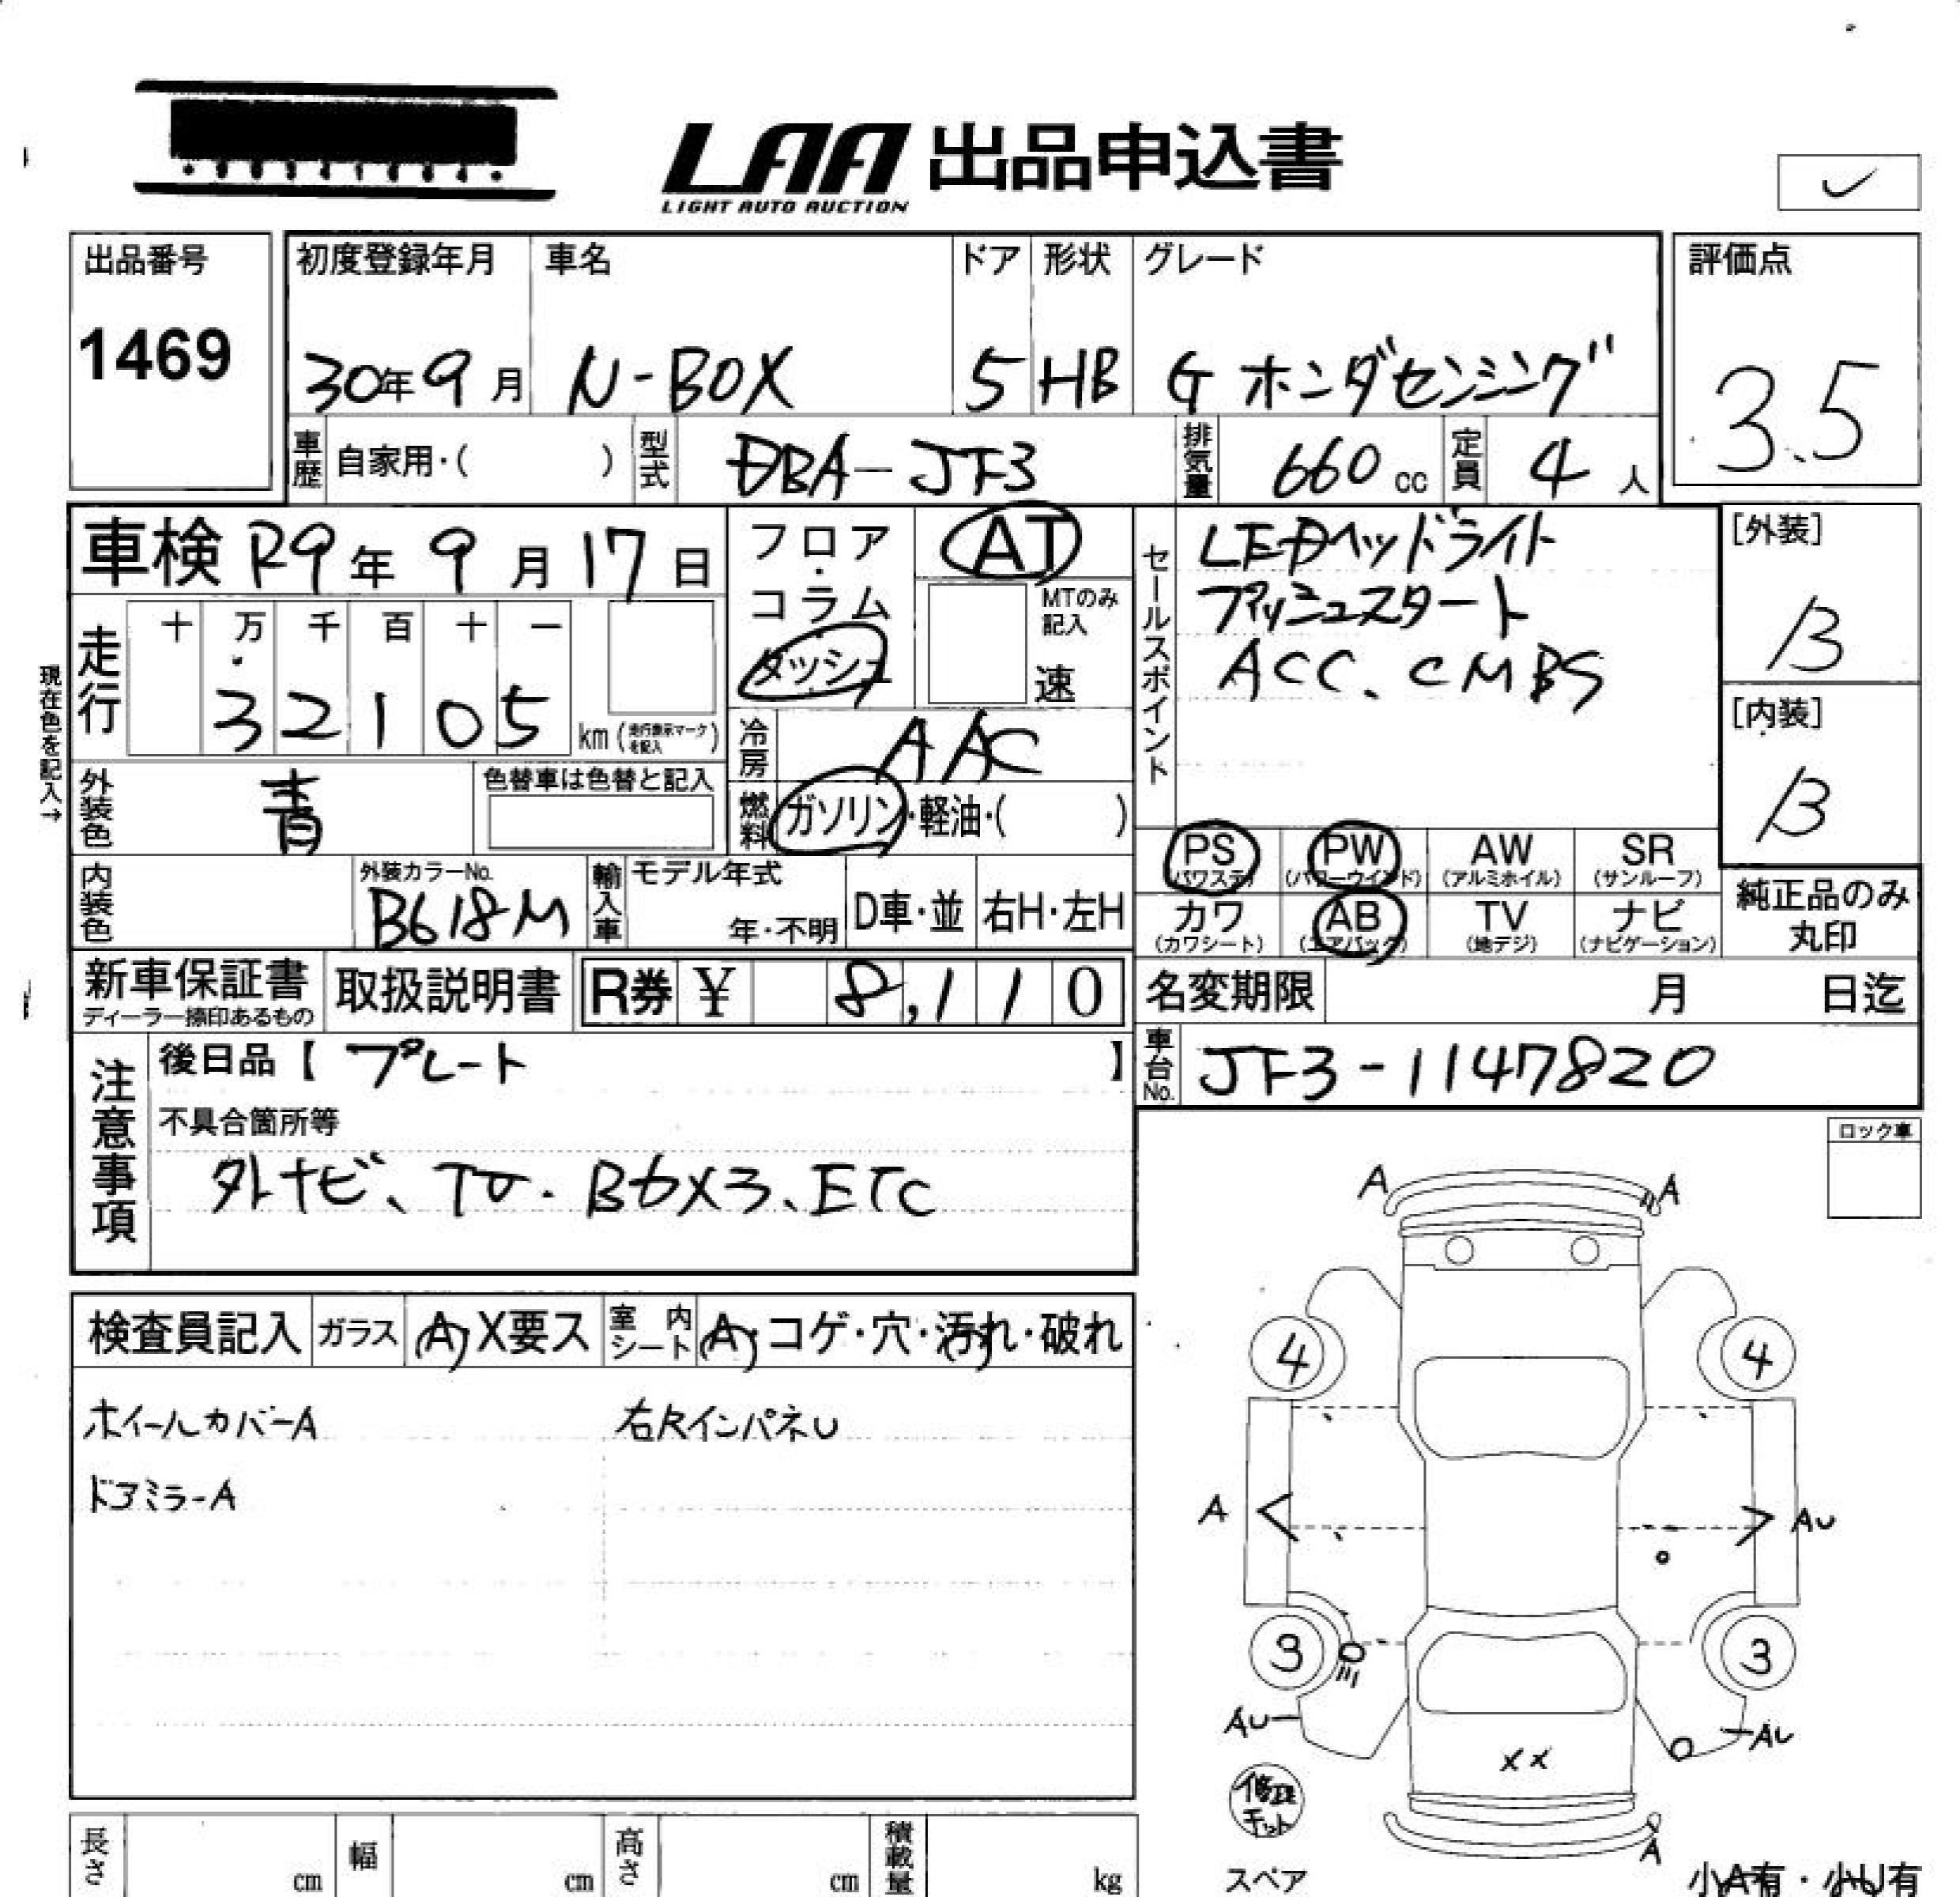 LAA 出品申込書
LIGHT AUTO AUCTION
出品番号 初度登録年月 車名 ドア 形状 グレード 評価点
1469 30年9月 N-BOX 5 HB G ホンダセンシング 3.5
車歴 自家用・( ) 型式 DBA-JF3 排気量 660cc 定員 4人
車検 R9年9月17日 フロア・コラム AT セールスポイント LEDヘッドライト [外装]
プッシュスタート B
十 万 千 百 十 一 MTのみ記入 ACC、CMBS
走行 32105 km(走行表示マークを記入) ダッシュ 速 [内装]
現在色を記入→ 冷房 AAC B
外装色 青 色替車は色替と記入 燃料 ガソリン・軽油・( )
PS(パワステ) PW(パワーウインド) AW(アルミホイル) SR(サンルーフ)
内装色 外装カラーNo. B618M 輸入車 モデル年式 年・不明 D車・並 右H・左H
カワ(カワシート) AB(エアバック) TV(地デジ) ナビ(ナビゲーション) 純正品のみ丸印
新車保証書 ディーラー捺印あるもの 取扱説明書 R券 ¥ 8,110 名変期限 月 日迄
注意事項 後日品【プレート】 車台No. JF3-1147820
不具合箇所等
外ナビ、TV.B6X3、ETC
ロック車
A A
検査員記入 ガラス A・X要ス 室内シート A・コゲ・穴・汚れ・破れ
4 4
ホイールカバーA 右RインパネU
ドアミラーA
A AU
3 3
AU AU
XX
A
スペア 小A有・小U有
長さ cm 幅 cm 高さ cm 積載量 kg